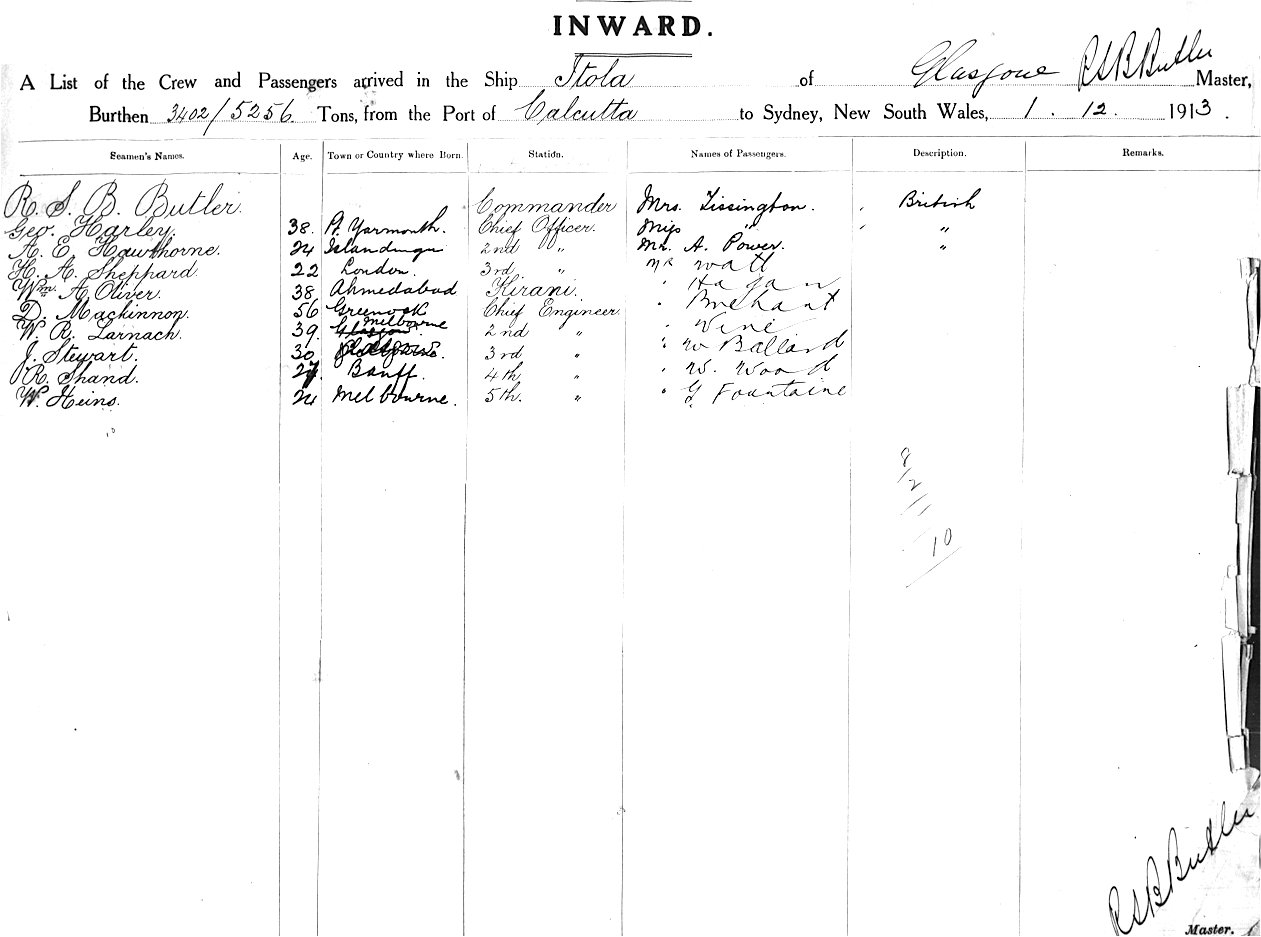 INWARD.
A List of the Crew and Passengers arrived in the Ship Itola of Glasgow R S B Butler Master,
Burthen 3402/5256 Tons, from the Port of Calcutta to Sydney, New South Wales, 1. 12. 1913.
Seamen's Names. Age. Town or Country where Born. Station. Names of Passengers. Description. Remarks.
R. S. B. Butler. Commander Mrs. Tissington. British
Geo. Harley. 38. Yarmouth. Chief Officer. Miss " "
A. E. Hawthorne. 24 2nd " Mr. A. Power. "
H. A. Sheppard. 22 London. 3rd. " Mr Watt
Wm. A. Oliver. 38 Ahmedabad Kirani. " Hagan
D. Mackinnon. 56 Greenock Chief Engineer. "
W. R. Larnach. 39. Melbourne 2nd " "
J. Stewart. 30. 3rd " " W Ballard
R. Shand. 27. Banff. 4th " " W. Wood
W. Heins. 24 Melbourne. 5th. " " G Fountaine
8/2/11
10
R S B Butler
Master.